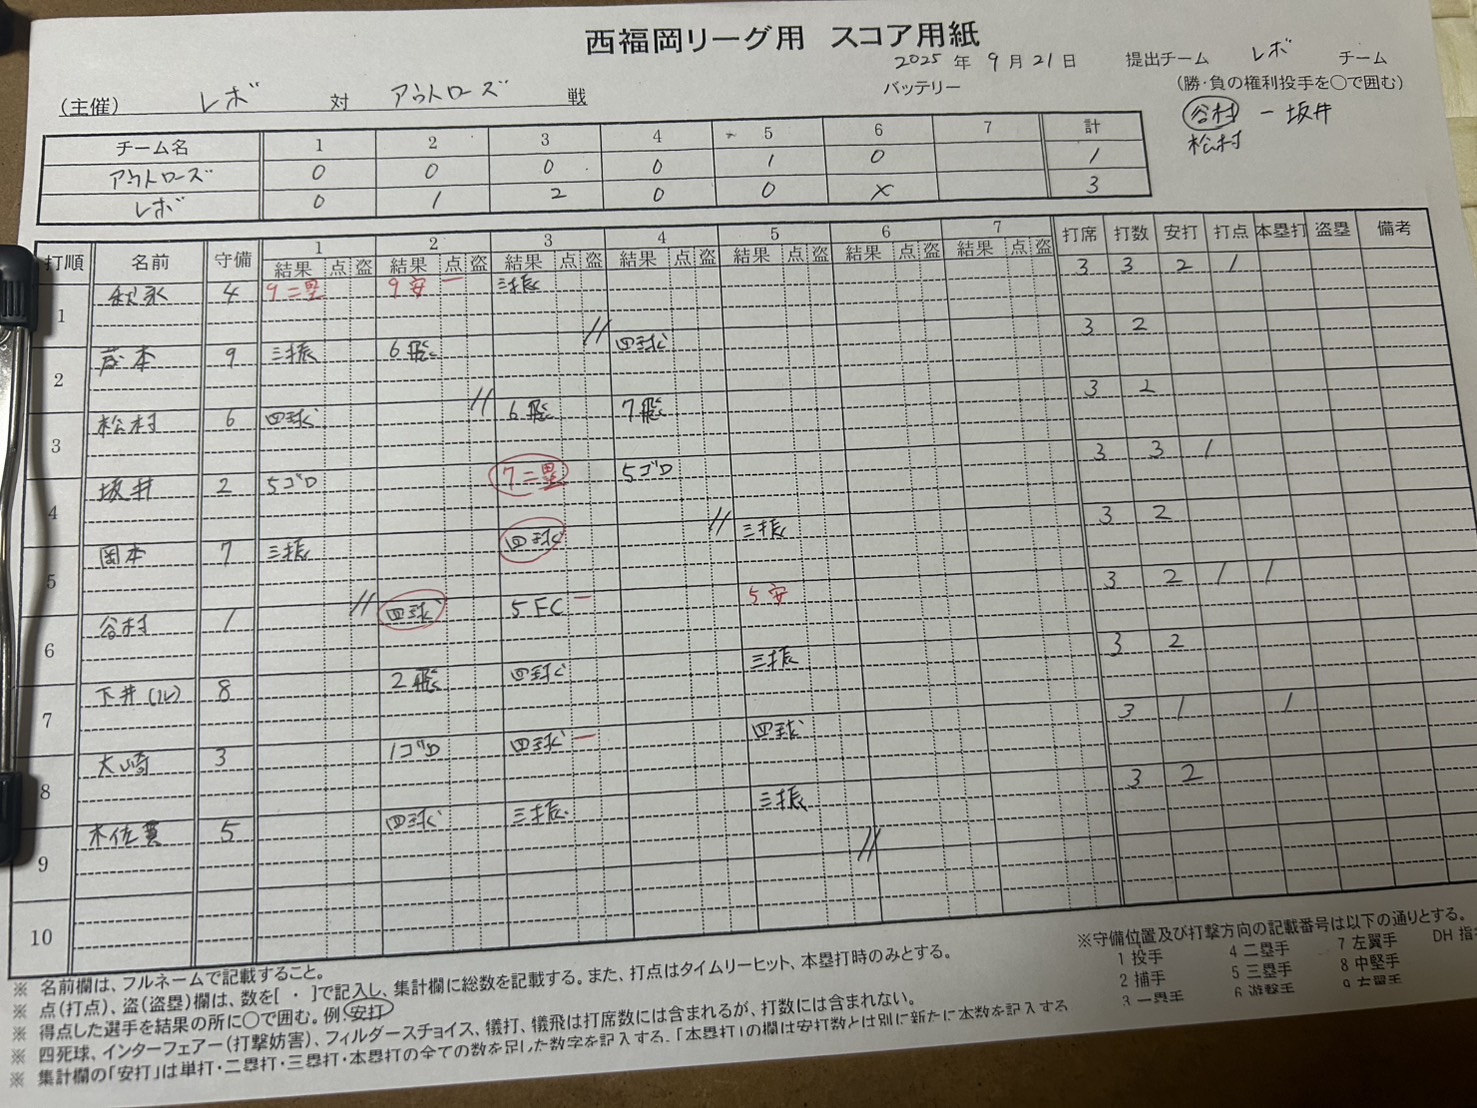 西福岡リーグ用 スコア用紙
2025 年 9 月 21 日 提出チーム レボ チーム
(主催) レボ 対 アウトローズ 戦 バッテリー (勝・負の権利投手を○で囲む)
谷村 - 坂井
松村
チーム名 1 2 3 4 5 6 7 計
アウトローズ 0 0 0 0 1 0 1
レボ 0 1 2 0 0 X 3
打順 名前 守備 1 2 3 4 5 6 7 打席 打数 安打 打点 本塁打 盗塁 備考
結果 点 盗 結果 点 盗 結果 点 盗 結果 点 盗 結果 点 盗 結果 点 盗 結果 点 盗
1 4 9二塁 9安 一 三振 3 3 2 1
2 本 9 三振 6飛 // 四球 3 2
3 松村 6 四球 // 6飛 7飛 3 2
4 坂井 2 5ゴロ 7二塁 5ゴロ 3 3 1
5 岡本 7 三振 四球 // 三振 3 2
6 谷村 1 // 四球 5FC 一 5安 3 2 1 1
7 下井(ル) 8 2飛 四球 三振 3 2
8 大崎 3 1ゴロ 四球 一 四球 3 1 1
9 木佐貫 5 四球 三振 三振 // 3 2
10
※ 名前欄は、フルネームで記載すること。
※ 点(打点)、盗(盗塁)欄は、数を[ ・ ]で記入し、集計欄に総数を記載する。また、打点はタイムリーヒット、本塁打時のみとする。
※ 得点した選手を結果の所に○で囲む。例、安打
※ 四死球、インターフェアー(打撃妨害)、フィルダースチョイス、犠打、犠飛は打席数には含まれるが、打数には含まれない。
※ 集計欄の「安打」は単打・二塁打・三塁打・本塁打の全ての数を足した数字を記入する。「本塁打」の欄は安打数とは別に新たに本数を記入する
※守備位置及び打撃方向の記載番号は以下の通りとする。
1 投手 4 二塁手 7 左翼手 DH 指
2 捕手 5 三塁手 8 中堅手
3 一塁手 6 遊撃手 9 右翼手